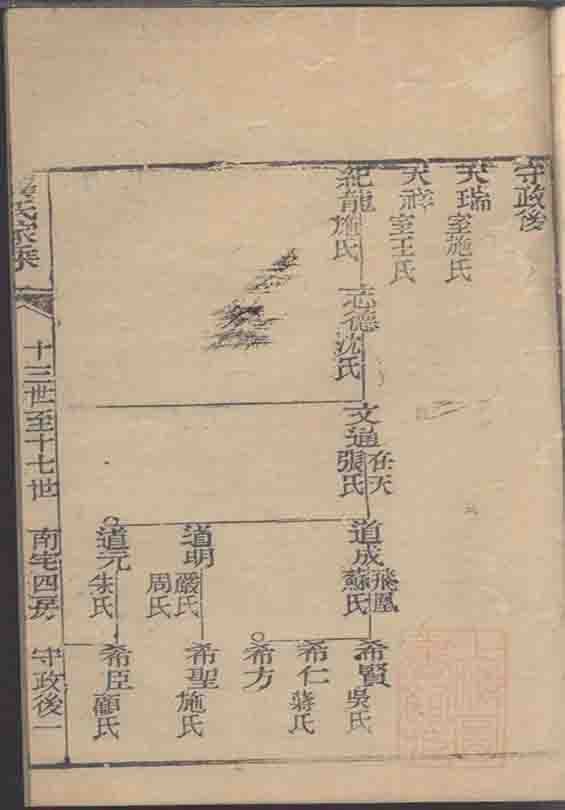 守政後
天瑞 室施氏
天祥 室王氏
紀龍 施氏
志德 沈氏
文通 在天 張氏
道成 飛鳳 蘇氏
道明 嚴氏 周氏
道元 朱氏
希賢 吳氏
希仁 蔣氏
希方
希聖 施氏
希臣 顧氏
氏家乘
十三世至十七世
南宅四房
守政後一